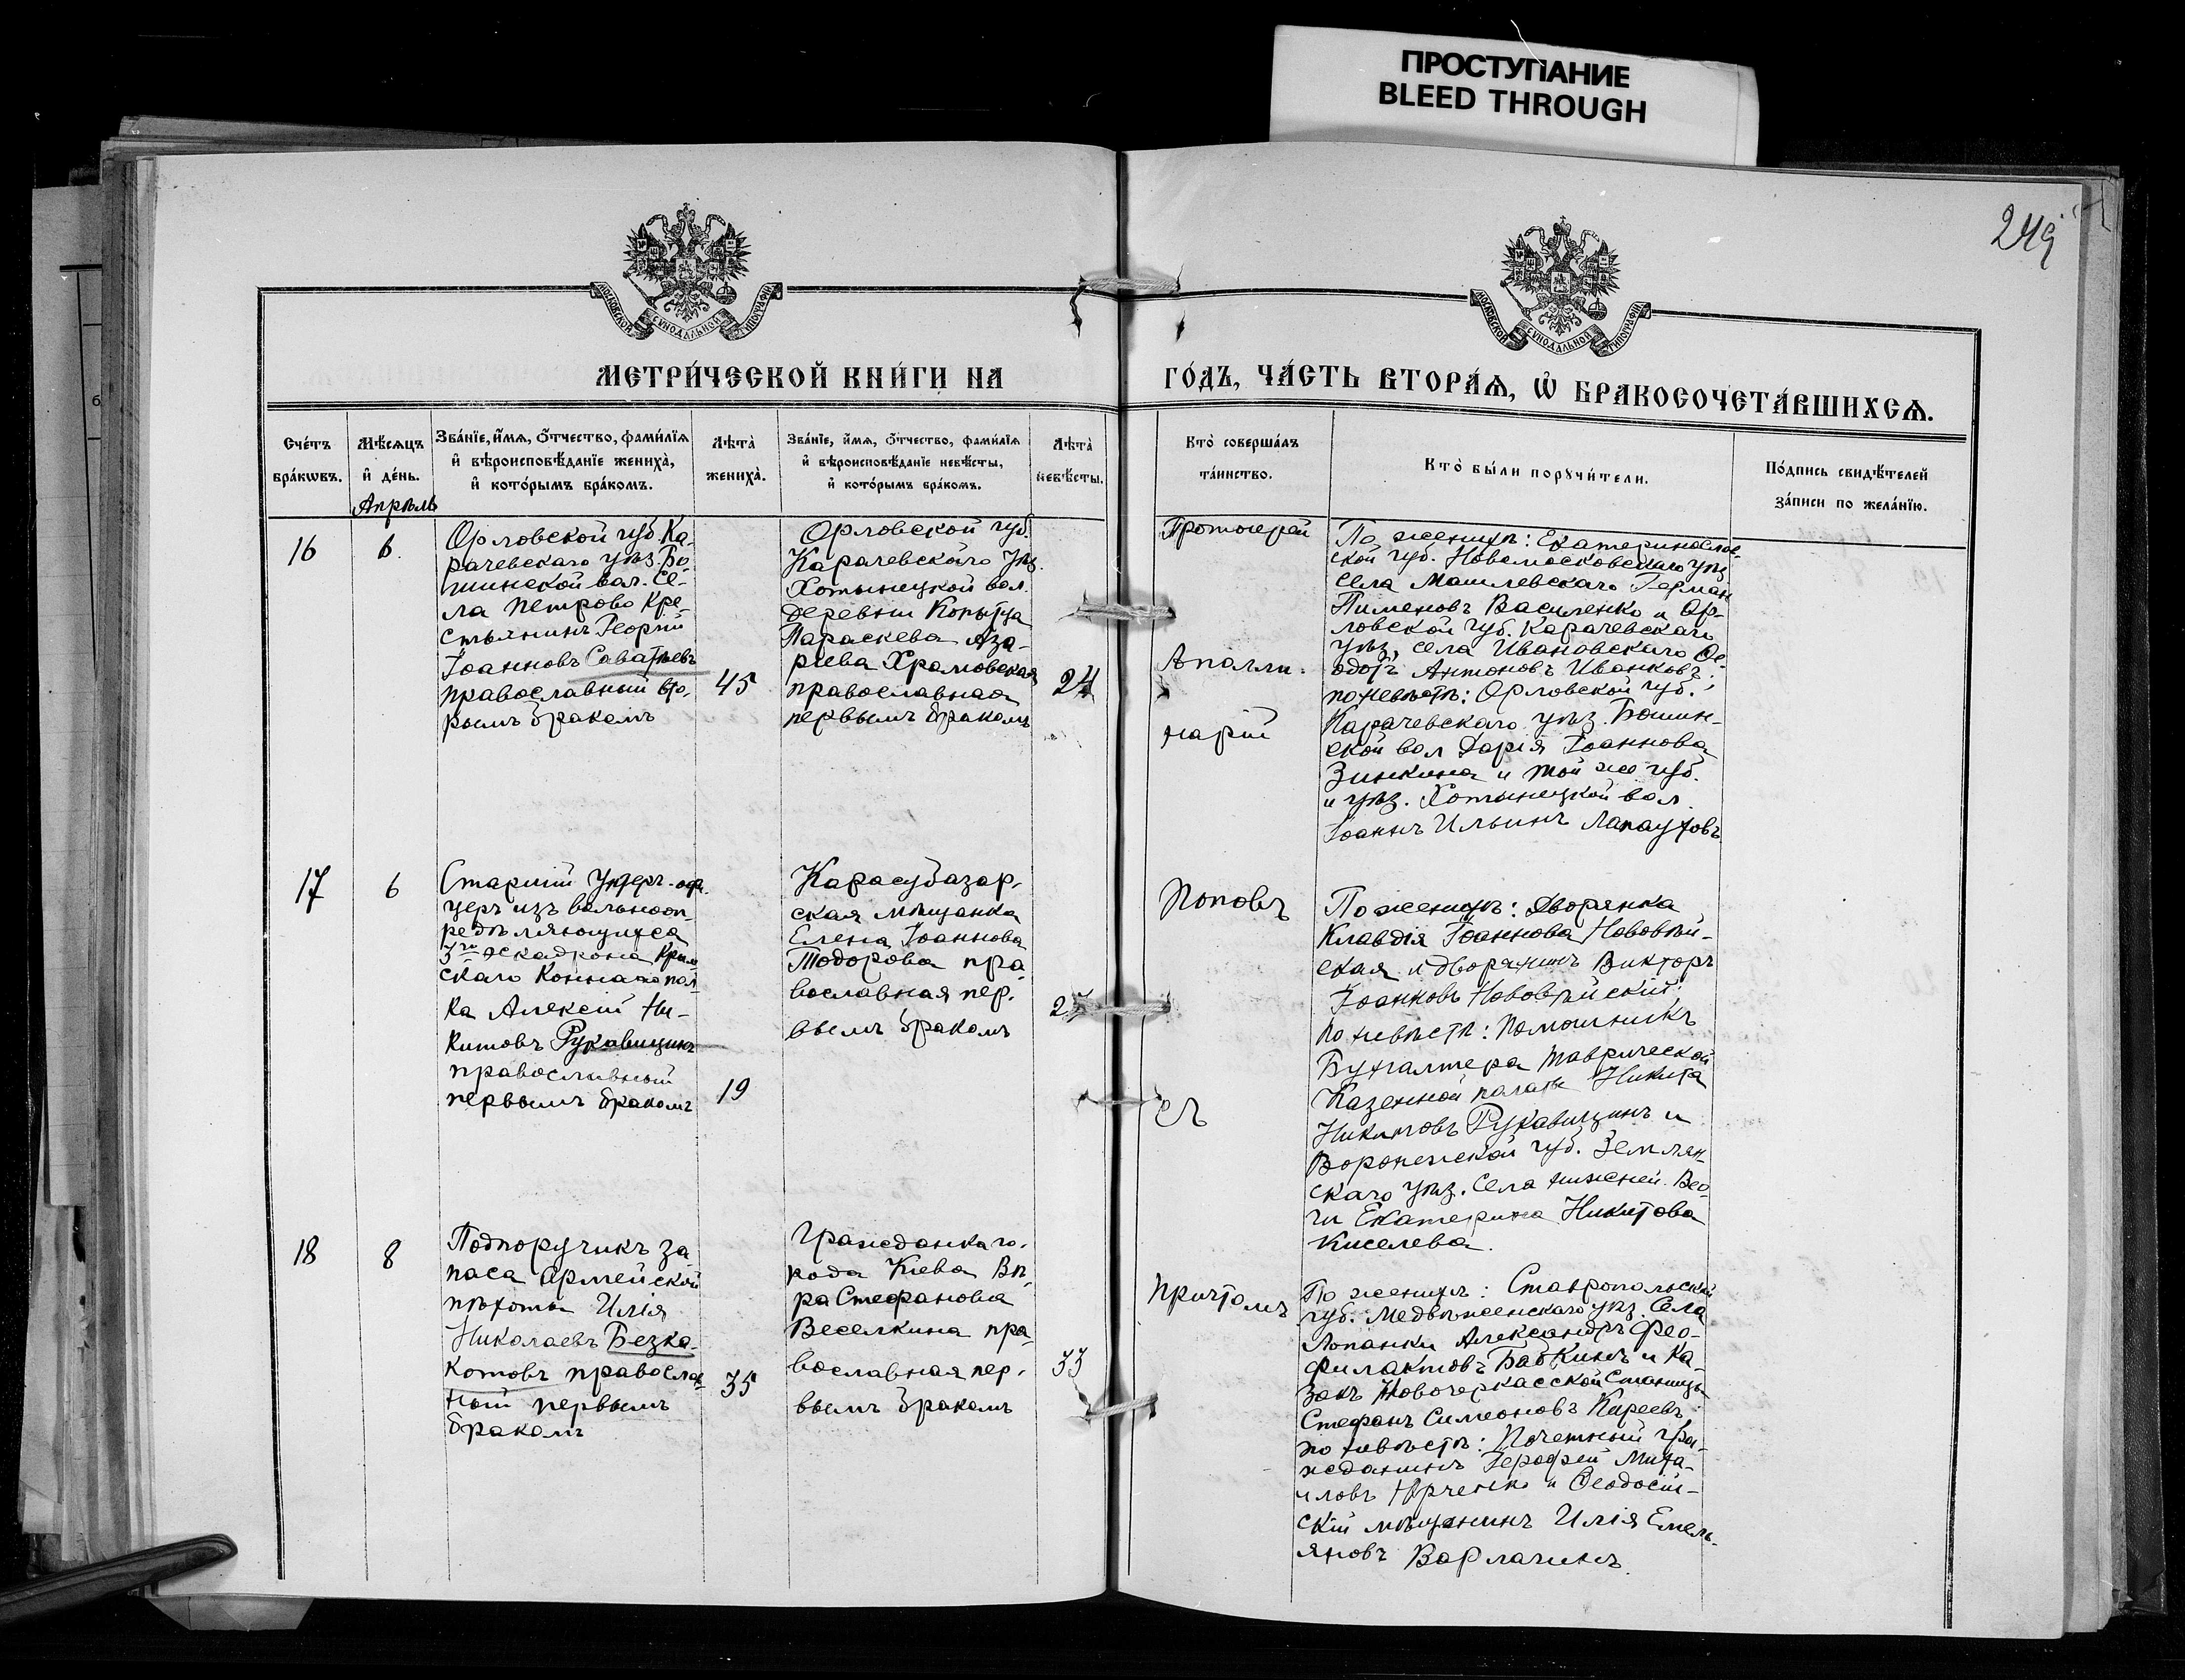 ПРОСТУПАНИЕ
BLEED THROUGH
249
МОСКОВСКОЙ СУНОДАЛЬНОЙ ТИПОГРАФІИ
МОСКОВСКОЙ СУНОДАЛЬНОЙ ТИПОГРАФІИ
МЕТРИ́ЧЕСКОЙ КНИ́ГИ НА
ГО́ДЪ, ЧА́СТЬ ВТОРА́Ѧ, Ѡ҆ БРАКОСОЧЕТА́ВШИХСѦ.
Сче́тъ
бра́кѡвъ.
Мѣ́сѧцъ
и҆ де́нь.
Апрѣль
Зва́нїе, и҆́мѧ, ѻ҆́тчество, фами́лїѧ
и҆ вѣроисповѣ́данїе жениха̀,
и҆ кото́рымъ бра́комъ.
Лѣта̀
жениха̀.
Зва́нїе, и҆́мѧ, ѻ҆́тчество, фами́лїѧ
и҆ вѣроисповѣ́данїе невѣ́сты,
и҆ кото́рымъ бра́комъ.
Лѣта̀
невѣ́сты.
Кто̀ соверша́лъ
та́инство.
Кто̀ бы́ли порꙋчи́тели.
По́дпись свидѣ́телей
за́писи по жела́нїю.
16
6
Орловской губ. Ка-
рачевскаго уѣз. Бо-
шинской вол. Се-
ла Петрово Кре-
стьянинъ Георгій
Іоанновъ Саватѣевъ
православный вто-
рымъ бракомъ
45
Орловской губ.
Карачевскаго уѣз.
Хотынецкой вол.
деревни Копытца
Параскева Аза-
ріева Храмовская
православная
первымъ бракомъ
24
Протоіерей
Аполли-
нарій
По женихѣ: Екатеринослав-
ской губ. Новомосковскаго уѣз.
села Машлевскаго Герман
Пименовъ Василенко и Ор-
ловской губ. Карачевскаго
уѣз, села Ивановскаго Ѳе-
одотъ Антоновъ Иванковъ;
по невѣстѣ: Орловской губ.
Карачевскаго уѣз. Бошин-
ской вол Дарія Іоаннова
Зинкина и той же губ.
и уѣз. Хотынецкой вол.
Іоаннъ Ильинъ Лапаухов
17
6
Старшій Унтеръ-офи-
церъ изъ вольнооп-
редѣляющихся
3го эскадрона Крым-
скаго Коннаго пол-
ка Алексій Ни-
китовъ Рукавицинъ
православный
первымъ бракомъ
19
Карасубазар-
ская мѣщанка
Елена Іоаннова
Тодорова пра-
вославная пер-
вымъ бракомъ
Поповъ
съ
По женихѣ: Дворянка
Клавдія Іоаннова Нововѣй-
ская и дворянинъ Викторъ
Іоанновъ Нововѣйскій;
по невѣстѣ: Помошникъ
Бухгалтера Таврической
Казенной палаты Никита
Никитовъ Рукавицинъ и
Воронежской губ. Землян-
скаго уѣз. Села нижней Вео-
ги Екатерина Никитова
Киселева.
18
8
Подпоручикъ за-
паса Армейской
пѣхоты Илія
Николаевъ Безка-
котовъ православ-
ный первымъ
бракомъ
35
Гражданка го-
рода Кіева Вѣ-
ра Стефанова
Веселкина пра-
вославная пер-
вымъ бракомъ
33
Причтомъ
По женихѣ: Ставропольской
губ. Медвѣженскаго уѣз. Села
Лопанки Александръ Фео-
филактовъ Бабкинъ и Ка-
закъ Новочеркасской Станицы
Стефанъ Симеоновъ Киреевъ;
по невѣстѣ: Почетный гра-
жданинъ Іерофей Миха-
иловъ и Ѳеодосій-
скій мѣщанинъ Илія Емель-
яновъ Варлагинъ.